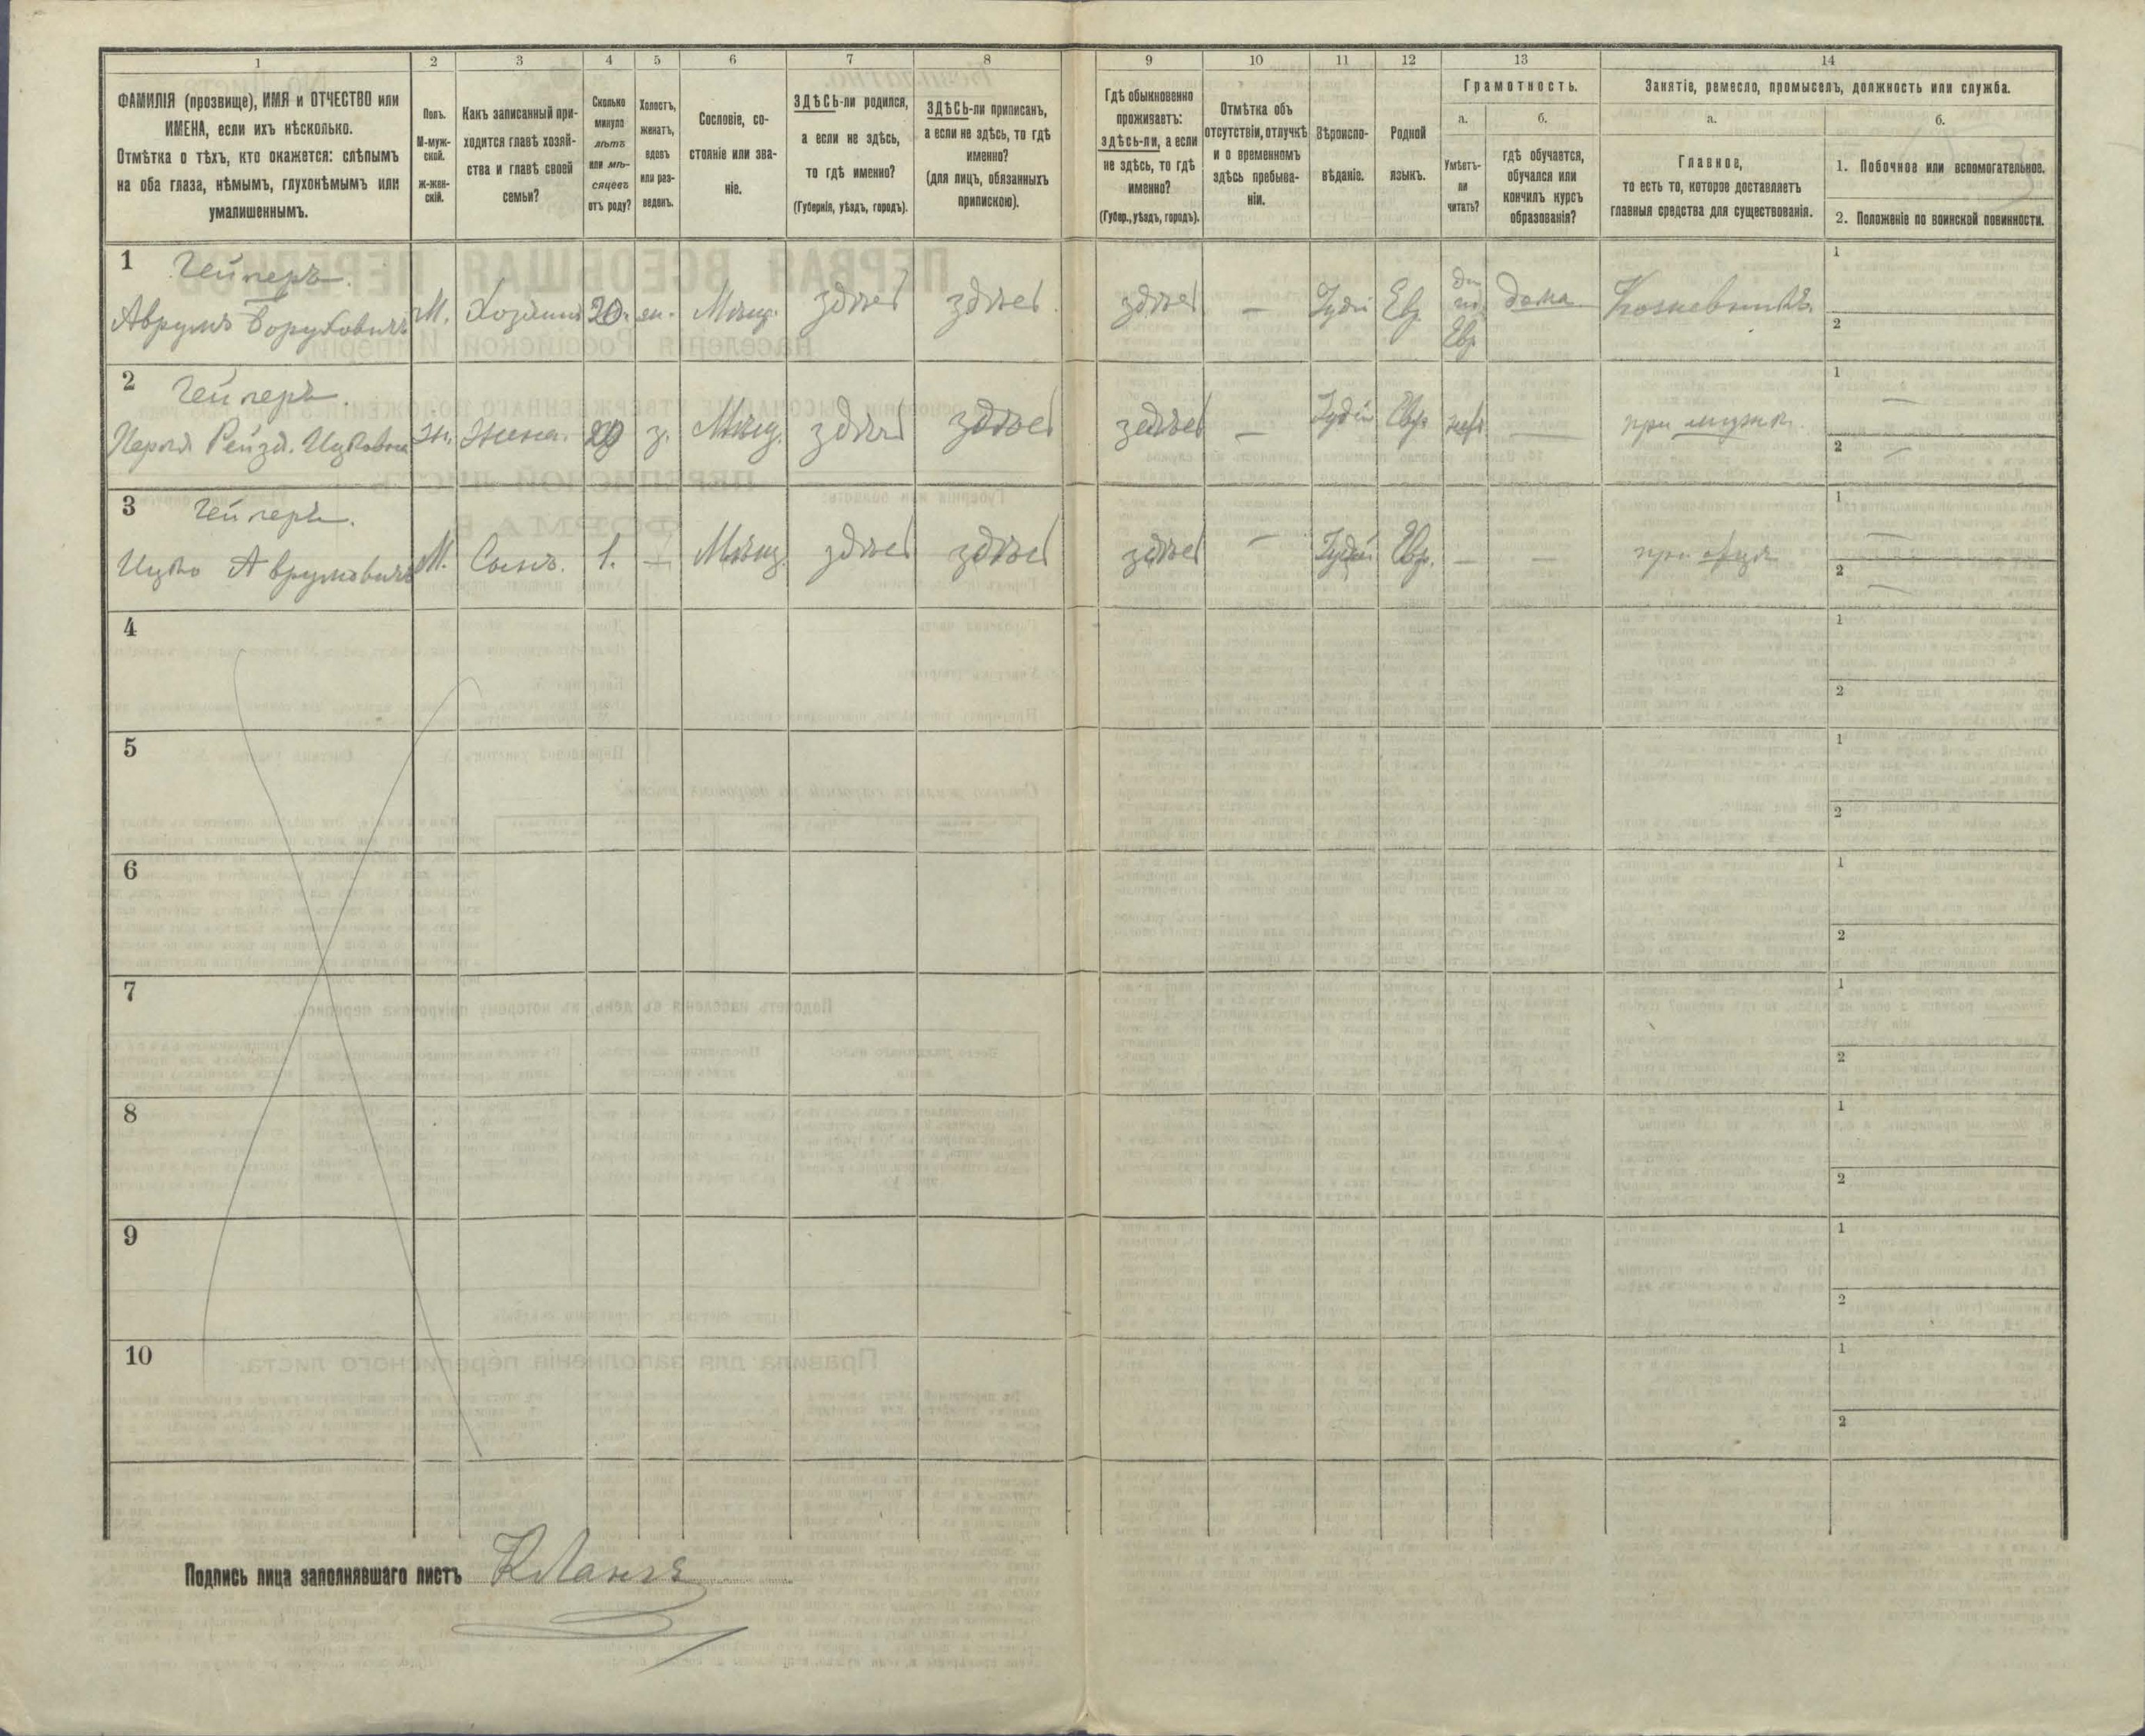 1 2 3 4 5 6 7 8 9 10 11 12 13 14
ФАМИЛІЯ (прозвище), ИМЯ и ОТЧЕСТВО или
ИМЕНА, если ихъ нѣсколько.
Отмѣтка о тѣхъ, кто окажется: слѣпымъ
на оба глаза, нѣмымъ, глухонѣмымъ или
умалишеннымъ.
Полъ.
М-муж-
ской.
Ж-жен-
скій.
Какъ записанный при-
ходится главѣ хозяй-
ства и главѣ своей
семьи?
Сколько
минуло
лѣтъ
или мѣ-
сяцевъ
отъ роду?
Холостъ,
женатъ,
вдовъ
или раз-
веденъ.
Сословіе, со-
стояніе или зва-
ніе.
ЗДѢСЬ-ли родился,
а если не здѣсь,
то гдѣ именно?
(Губернія, уѣздъ, городъ).
ЗДѢСЬ-ли приписанъ,
а если не здѣсь, то гдѣ
именно?
(для лицъ, обязанныхъ
припискою).
Гдѣ обыкновенно
проживаетъ:
здѣсь-ли, а если
не здѣсь, то гдѣ
именно?
(Губер., уѣздъ, городъ).
Отмѣтка объ
отсутствіи, отлучкѣ
и о временномъ
здѣсь пребыва-
ніи.
Вѣроиспо-
вѣданіе.
Родной
языкъ.
Грамотность.
а.
Умѣетъ-
ли
читать?
б.
гдѣ обучается,
обучался или
кончилъ курсъ
образованія?
Занятіе, ремесло, промыселъ, должность или служба.
а.
Главное,
то есть то, которое доставляетъ
главныя средства для существованія.
б.
1. Побочное или вспомогательное.
2. Положеніе по воинской повинности.
1 Гейперъ.
Аврумъ Боруховичъ М. Хозяинъ 20. ж. Мѣщ. здѣсь здѣсь здѣсь — Іудей Евр. да по Евр. дома
1
2
2 Гейперъ.
Перля Рейзя Ицковна Ж. Жена. 20 з. Мѣщ. здѣсь здѣсь здѣсь — Іудей Евр. нѣтъ — при мужѣ.
1 —
2 —
3 Гейперъ.
Ицко Аврумовичъ М. Сынъ. 1. — Мѣщ. здѣсь здѣсь здѣсь — Іудей Евр. — — при отцѣ
1 —
2 —
4
1
2
5
1
2
6
1
2
7
1
2
8
1
2
9
1
2
10
1
2
Подпись лица заполнявшаго листъ